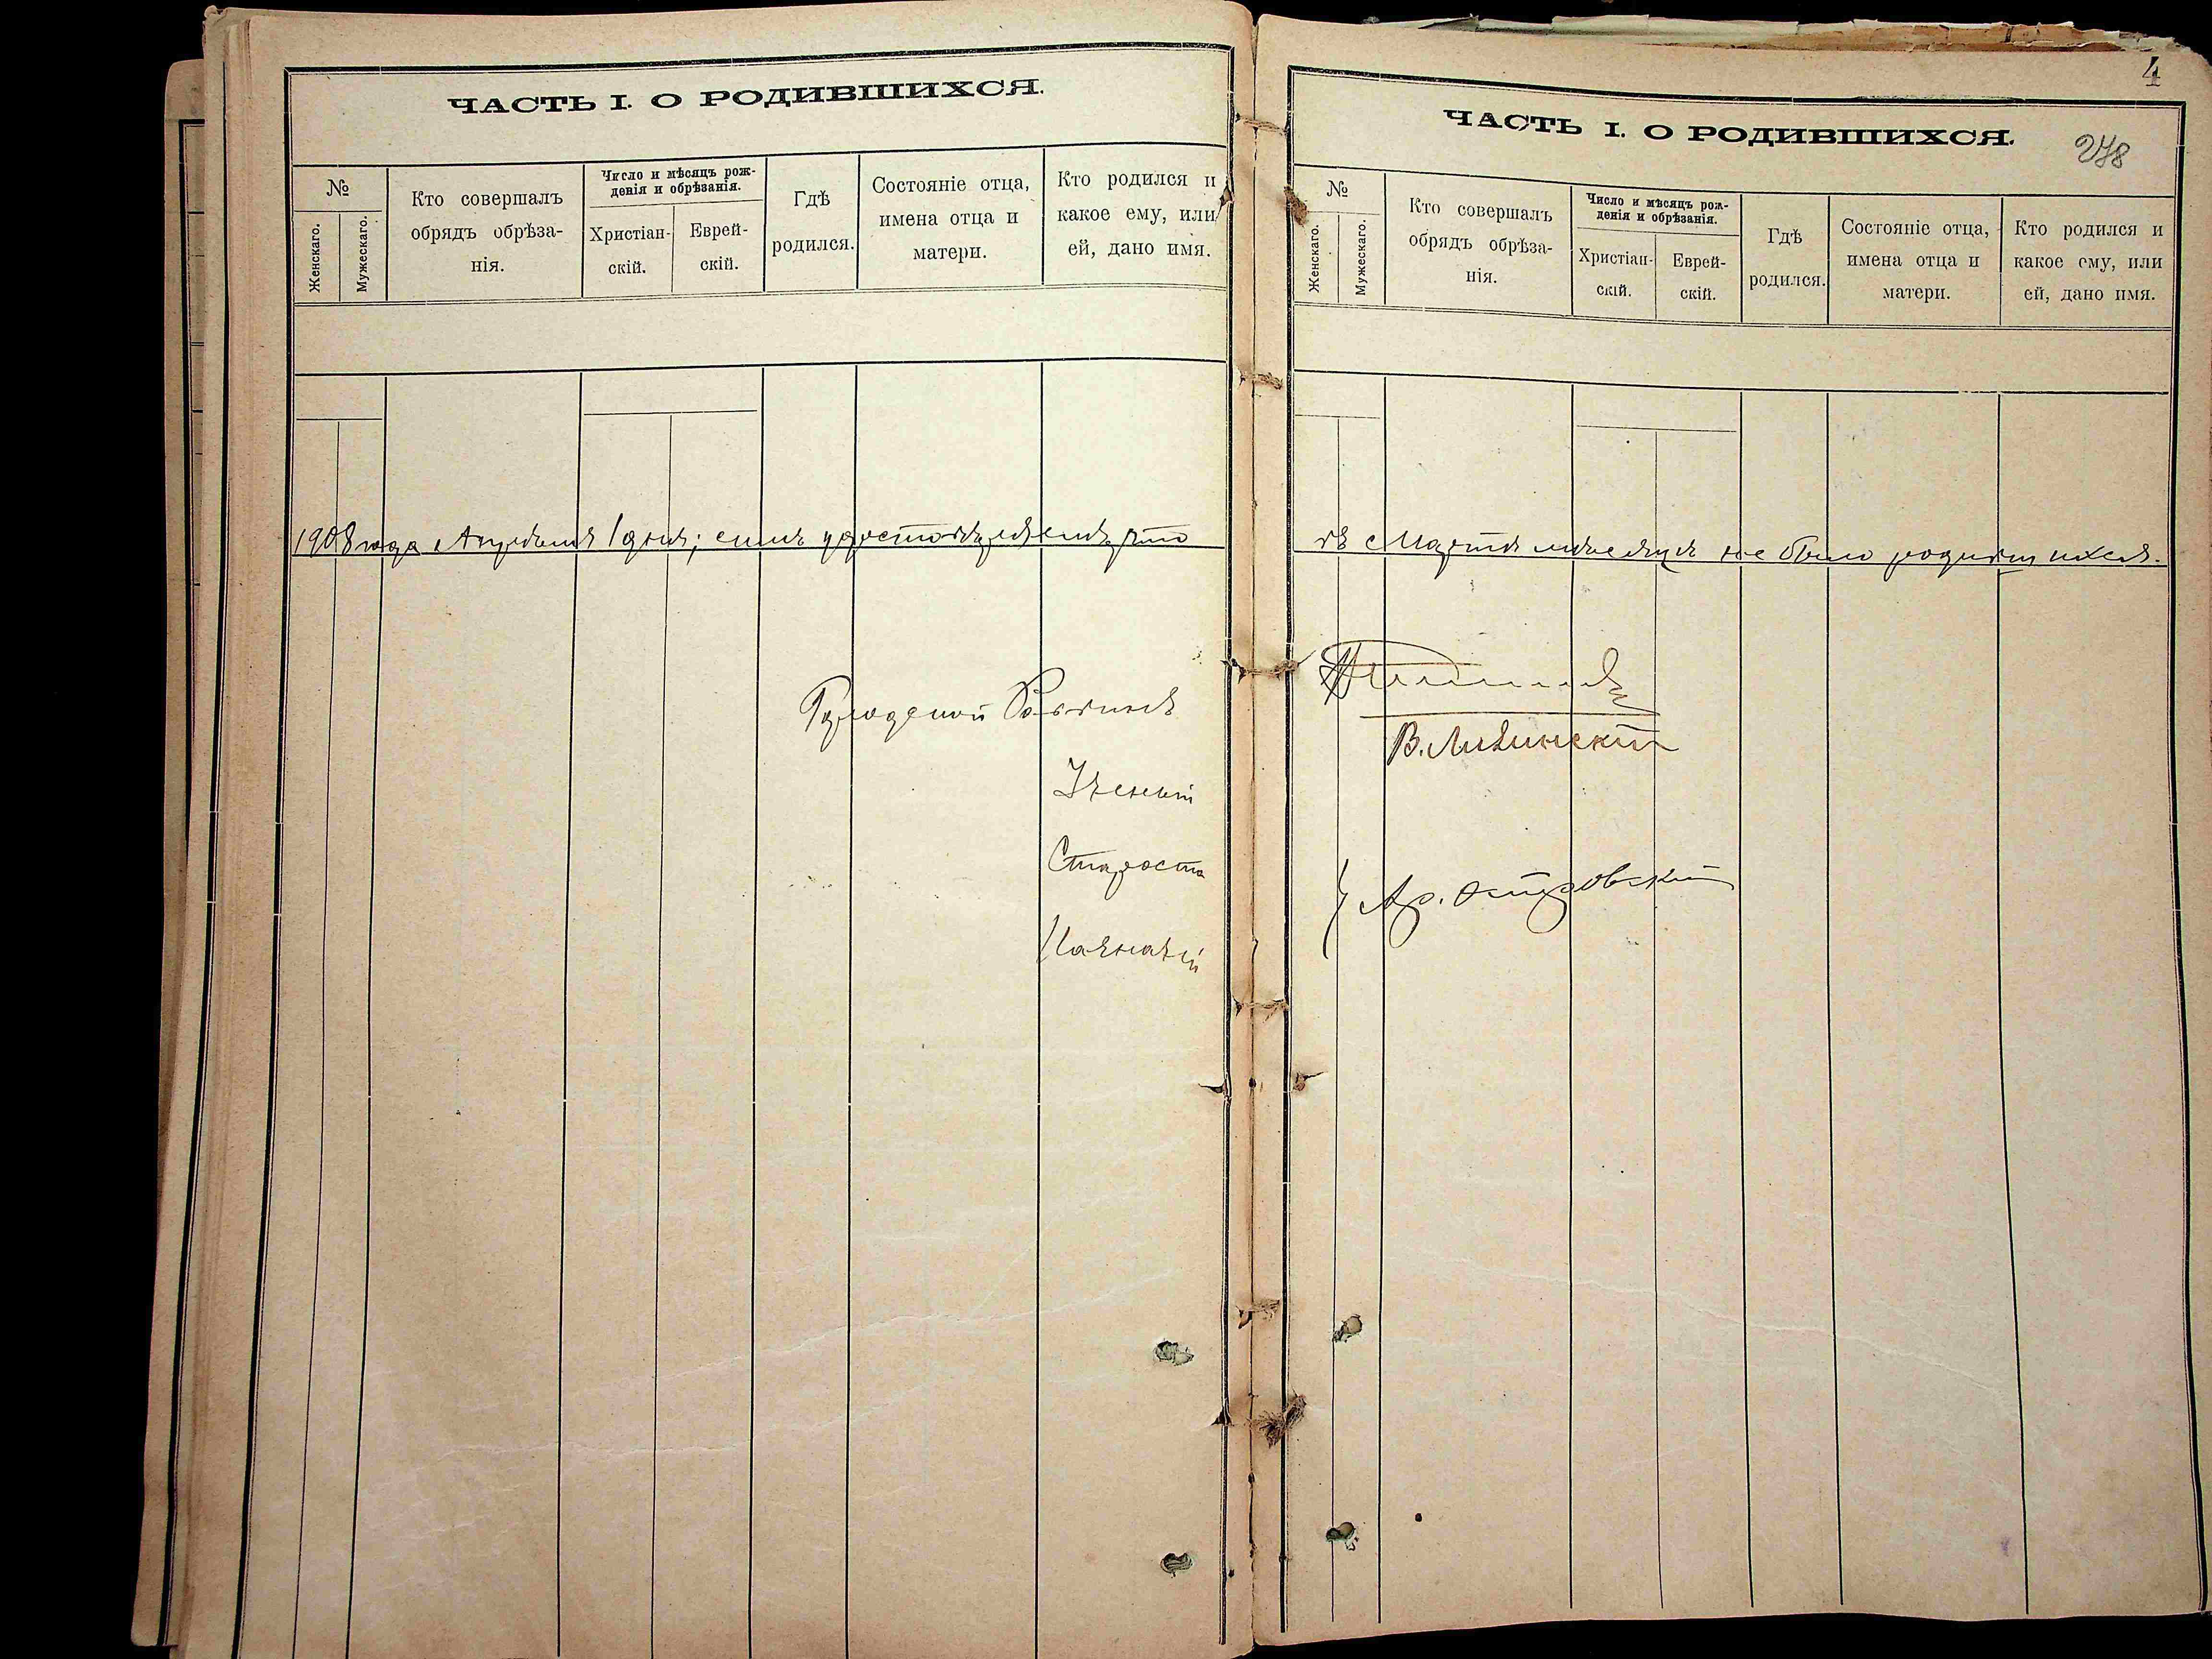 ЧАСТЬ I. О РОДИВШИХСЯ.
№
Женскаго.
Мужескаго.
Кто совершалъ
обрядъ обрѣза-
нія.
Число и мѣсяцъ рож-
денія и обрѣзанія.
Христіан-
скій.
Еврей-
скій.
Гдѣ
родился.
Состояніе отца,
имена отца и
матери.
Кто родился и
какое ему, или
ей, дано имя.
1908 года Апрѣля 1 дня; симъ удостовѣряемъ, что
Городской Раввинъ
Ученый
Староста
Казначей
4
ЧАСТЬ I. О РОДИВШИХСЯ.
278
№
Женскаго.
Мужескаго.
Кто совершалъ
обрядъ обрѣза-
нія.
Число и мѣсяцъ рож-
денія и обрѣзанія.
Христіан-
скій.
Еврей-
скій.
Гдѣ
родился.
Состояніе отца,
имена отца и
матери.
Кто родился и
какое ему, или
ей, дано имя.
въ Мартѣ мѣсяцѣ не было родившихся.
Ар. Островскій